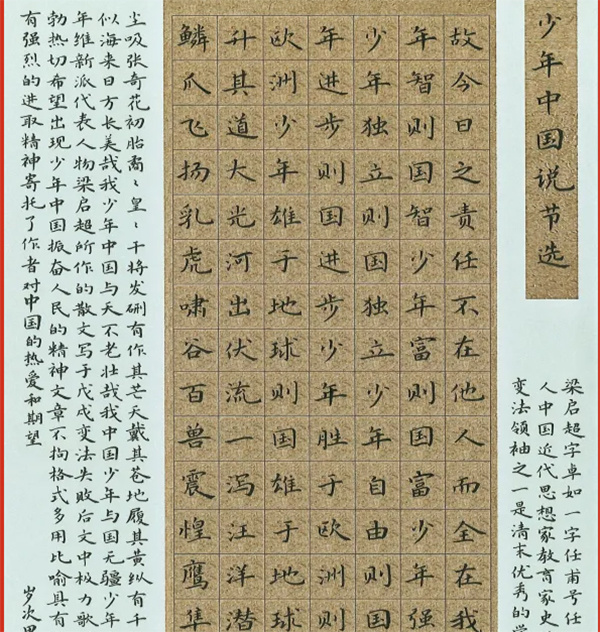 少年中国说节选
梁启超字卓如一字任甫号任
人中国近代思想家教育家史
变法领袖之一是清末优秀的学
故今日之责任不在他人而全在我
年智则国智少年富则国富少年强
少年独立则国独立少年自由则国
年进步则国进步少年胜于欧洲则
欧洲少年雄于地球则国雄于地球
升其道大光河出伏流一泻汪洋潜
鳞爪飞扬乳虎啸谷百兽震惶鹰隼
尘吸张奇花初胎矞〻皇〻干将发硎有作其芒天戴其苍地履其黄纵有千
似海来日方长美哉我少年中国与天不老壮哉我中国少年与国无疆少年
年维新派代表人物梁启超所作的散文写于戊戌变法失败后文中极力歌
勃热切希望出现少年中国振奋人民的精神文章不拘格式多用比喻具有
有强烈的进取精神寄托了作者对中国的热爱和期望
岁次